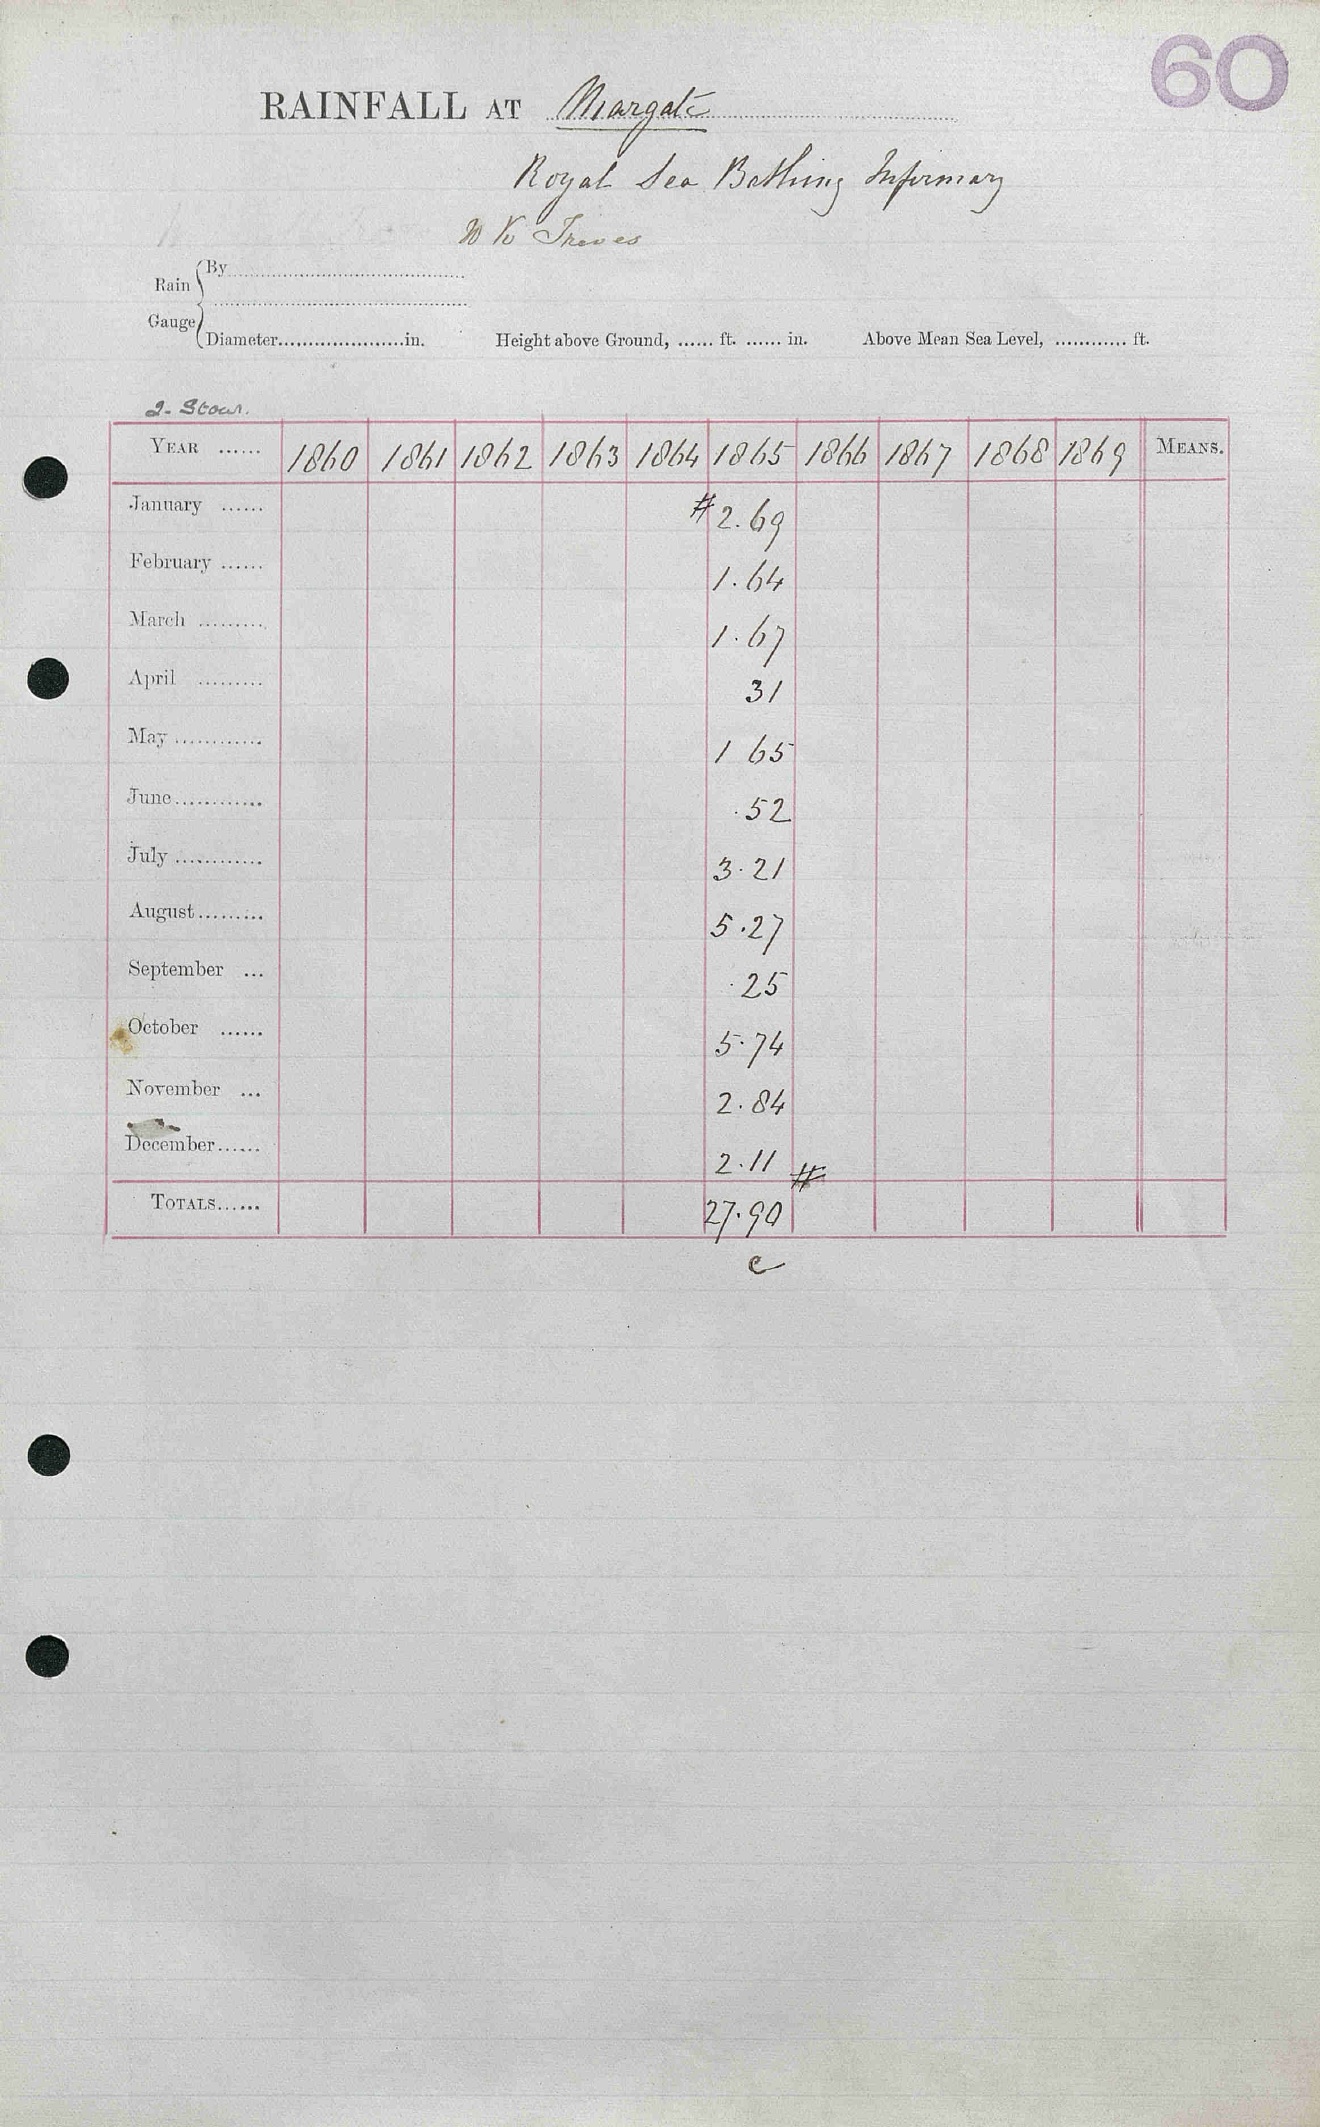 60
RAINFALL AT Margate
Royal Sea Bathing Infirmary
W K Treves
Rain Gauge
By
Diameter.....................in. Height above Ground, ...... ft. ...... in. Above Mean Sea Level, ............ ft.
2. Stour.
YEAR ...... 1860 1861 1862 1863 1864 1865 1866 1867 1868 1869 MEANS.
January ...... # 2.69
February ...... 1.64
March ......... 1.67
April ......... 31
May ............ 1 65
June............ .52
July ............ 3.21
August......... 5.27
September ... .25
October ...... 5.74
November ... 2.84
December...... 2.11 #
TOTALS...... 27.90
c